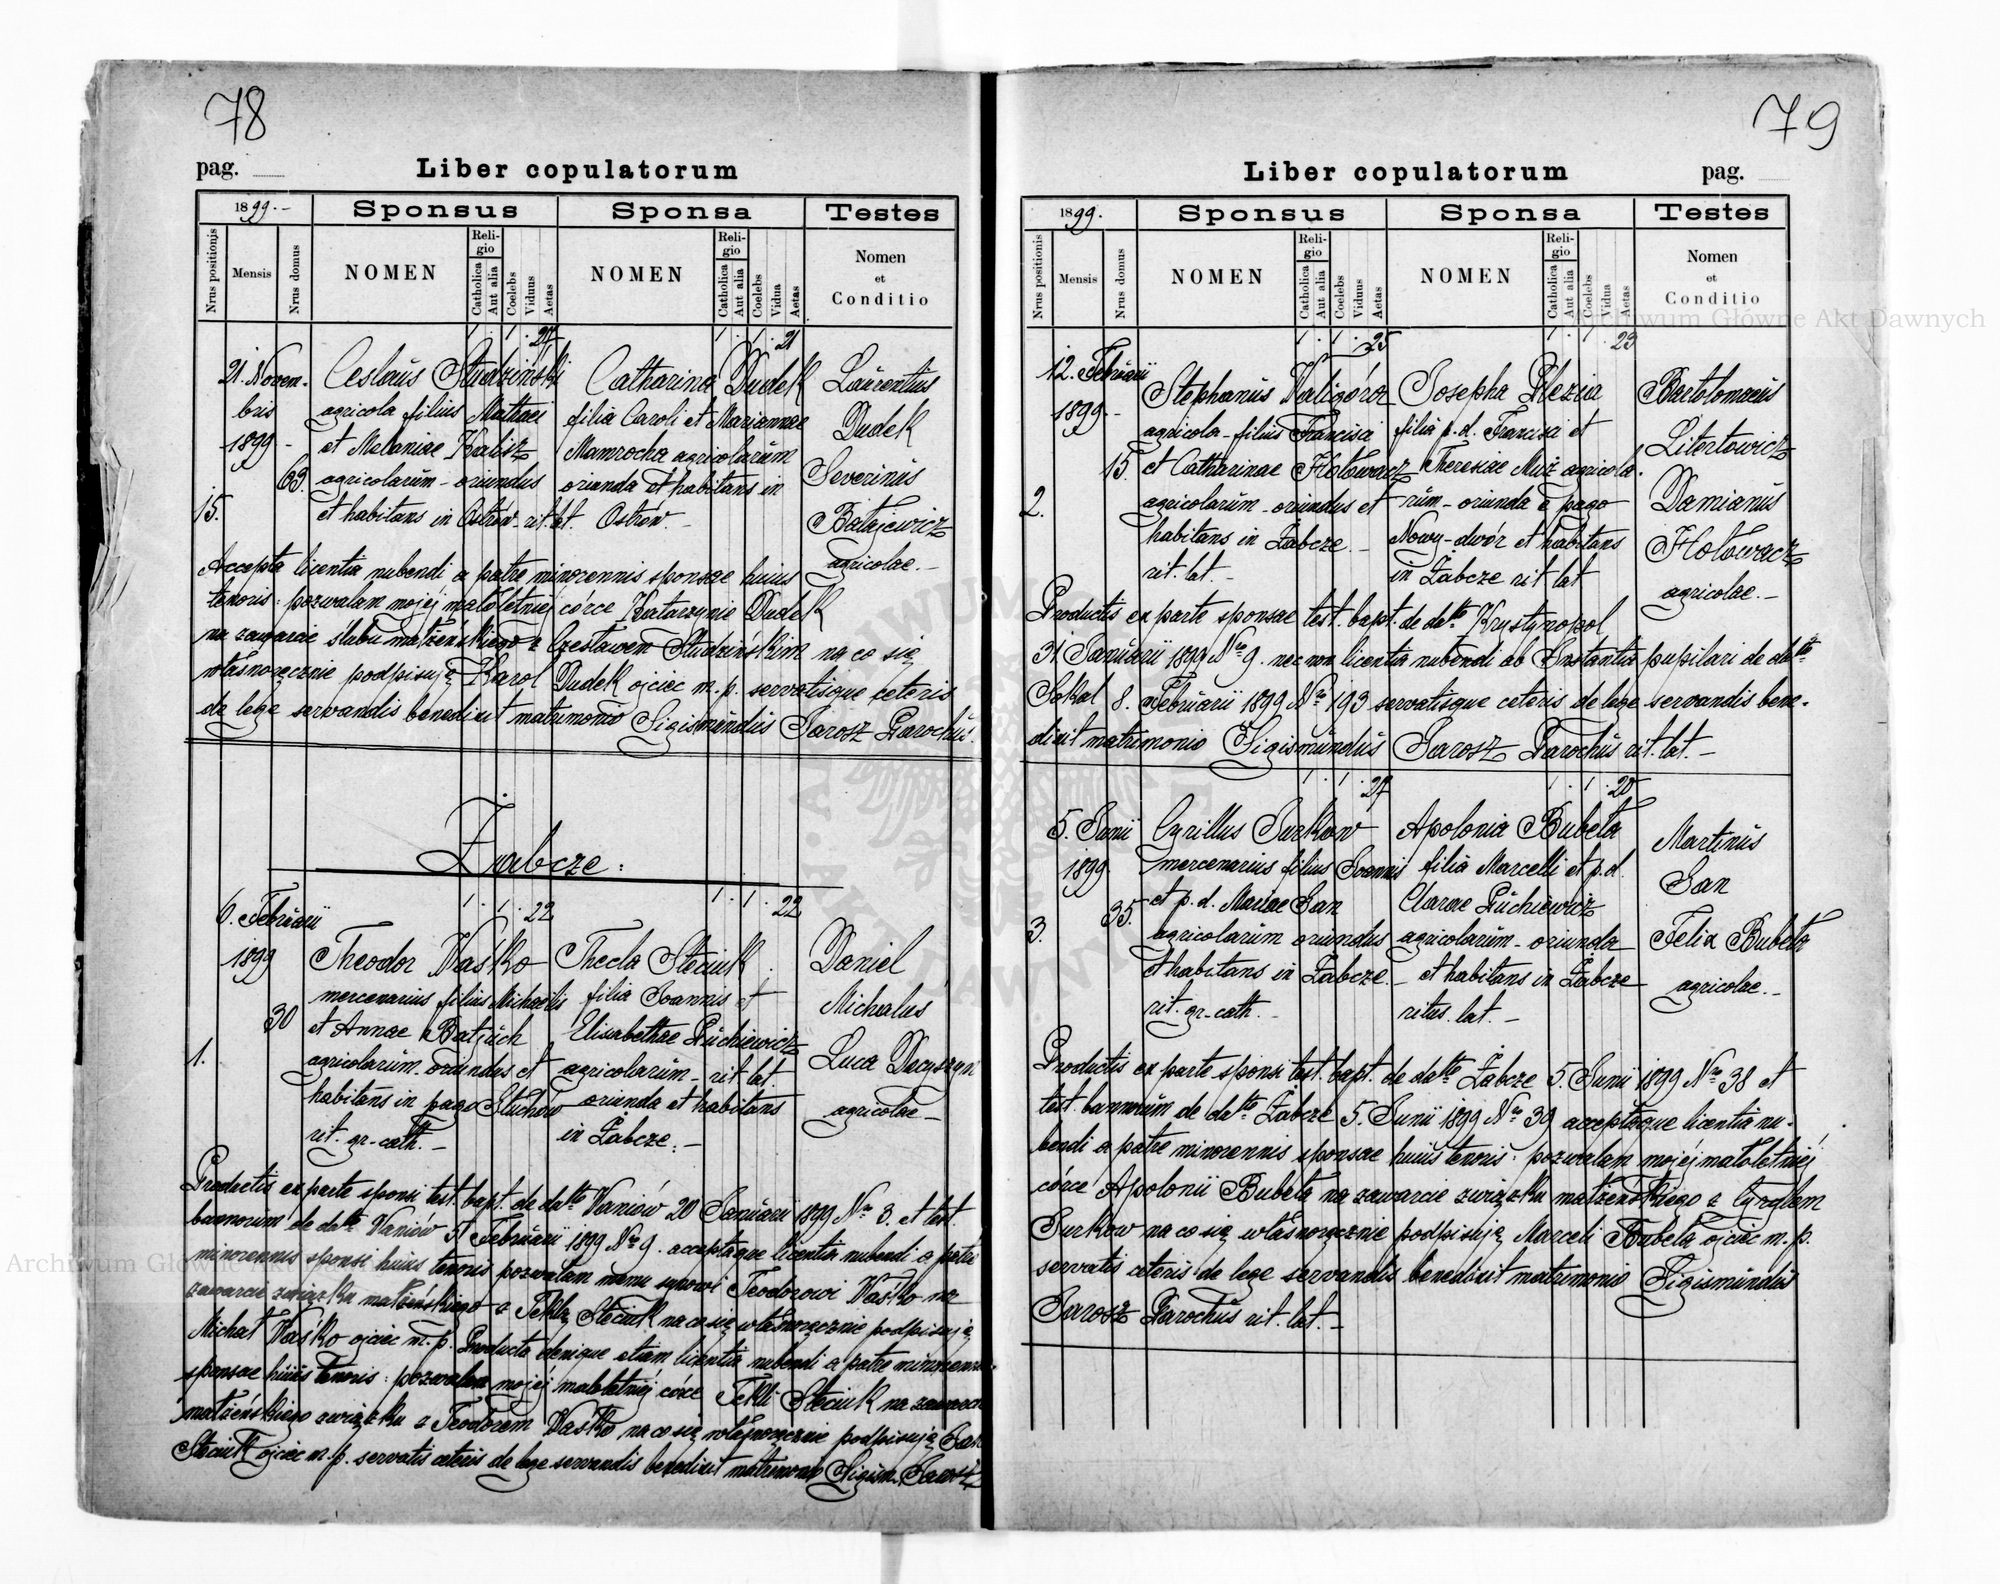 78
pag.
Liber copulatorum
1899.-
Sponsus
Sponsa
Testes
Nrus positionis
Mensis
Nrus domus
NOMEN
Religio
Catholica
Aut alia
Coelebs
Viduus
Aetas
NOMEN
Religio
Catholica
Aut alia
Coelebs
Vidua
Aetas
Nomen
et
Conditio
1 . 1 . 1 . 21
21. Novembris
1899 -
63.
15.
Ceslaus Studziński
agricola filius Mathaei
et Melaniae Kalisz
agricolarum - oriundus
et habitans in Ostrów. rit. lat.
Catharina Dudek
filia Caroli et Mariannae
Mamrocha agricolarum
oriunda et habitans in
Ostrów. -
Laurentius
Dudek
Severinus
Batajewicz
agricolae. -
Accepta licentia nubendi a patre minorennis sponsae huius
tenoris: pozwalam mojéj małoletniej córce Katarzynie Dudek
na zawarcie ślubu małżeńskiego z Czesławem Studzińskim na co się
własnoręcznie podpisuję Karol Dudek ojciec m. p. servatisque ceteris
de lege servandis benedixit matrimonio Sigismundus Jarosz Parochus.
Żabcze:
1 . 1 . 22
1 . 1 . 22
6. Februarii
1899
30
1.
Theodor Waśko
mercenarius filius Michaelis
et Annae Batjuch
agricolarum - oriundus et
habitans in pago Stuchow
rit. gr-cath. -
Thecla Steciuk
filia Joannis et
Elisabethae Puchiewicz
agricolarum - rit. lat.
oriunda et habitans
in Żabcze. -
Daniel
Michalus
Luca Decyszyn
agricolae -
Productis ex parte sponsi test. bapt. de datto Waniów 20 Januarii 1899 Nro 3. et test.
bannorum de datto Waniów 5 Februarii 1899 Nro 9. acceptaque licentia nubendi a patre
minorennis sponsi huius tenoris pozwalam memu synowi Teodorowi Waśko na
zawarcie związku małżeńskiego z Teklą Steciuk na co się własnoręcznie podpisuję
Michał Waśko ojciec m. p. Producta denique etiam licentia nubendi a patre minorennis
sponsae huius tenoris: pozwalam mojéj małoletniéj córce Tekli Steciuk na zawarcie
małżeńskiego związku z Teodorem Waśko na co się własnoręcznie podpisuję Jan
Steciuk ojciec m. p. servatis ceteris de lege servandis benedixit matrimonio Sigism. Jarosz
79
Liber copulatorum
pag.
1899.
Sponsus
Sponsa
Testes
Nrus positionis
Mensis
Nrus domus
NOMEN
Religio
Catholica
Aut alia
Coelebs
Viduus
Aetas
NOMEN
Religio
Catholica
Aut alia
Coelebs
Vidua
Aetas
Nomen
et
Conditio
1 . 1 . 25
1 . 1 . 23
12. Februarii
1899. -
15.
2.
Stephanus Kaligóra
agricola - filius Francisci
et Catharinae Hołowacz
agricolarum - oriundus et
habitans in Żabcze. -
rit. lat. -
Josepha Plezia
filia p. d. Francisci et
Theresiae Muż agricola-
rum - oriunda e pago
Nowy-dwór et habitans
in Żabcze rit lat
Bartolomaeus
Litertowicz
Damianus
Hołowacz
agricolae. -
Productis ex parte sponsae test. bapt. de datto Krystynopol
31 Januarii 1899 Nro 9. nec non licentia nubendi ab Instantia pupilari de datto
Sokal 8. Februarii 1899 Nro 193 servatisque ceteris de lege servandis bene-
dixit matrimonio Sigismundus Jarosz Parochus rit. lat. -
1 . 1 . 27
1 . 1 . 20
5. Junii
1899.
35.
3.
Cyrillus Surkow
mercenarius filius Joannis
et p. d. Mariae San
agricolarum oriundus
et habitans in Żabcze. -
rit. gr-cath. -
Apolonia Bubeła
filia Marcelli et p. d.
Clarae Puchiewicz
agricolarum - oriunda
et habitans in Żabcze
ritus. lat. -
Martinus
San
Felix Bubeła
agricolae. -
Productis ex parte sponsi test. bapt. de datto Żabcze 5. Junii 1899 Nro 38 et
test. bannorum de datto Żabcze 5. Junii 1899 Nro 39 acceptaque licentia nu-
bendi a patre minorennis sponsae huius tenoris: pozwalam mojéj małoletniéj
córce Apolonii Bubeła na zawarcie związku małżeńskiego z Cyrylem
Surkow na co się własnoręcznie podpisuję Marceli Bubeła ojciec m. p.
servatis ceteris de lege servandis benedixit matrimonio Sigismundus
Jarosz Parochus rit. lat. -
Archiwum Główne Akt Dawnych
Archiwum Główne